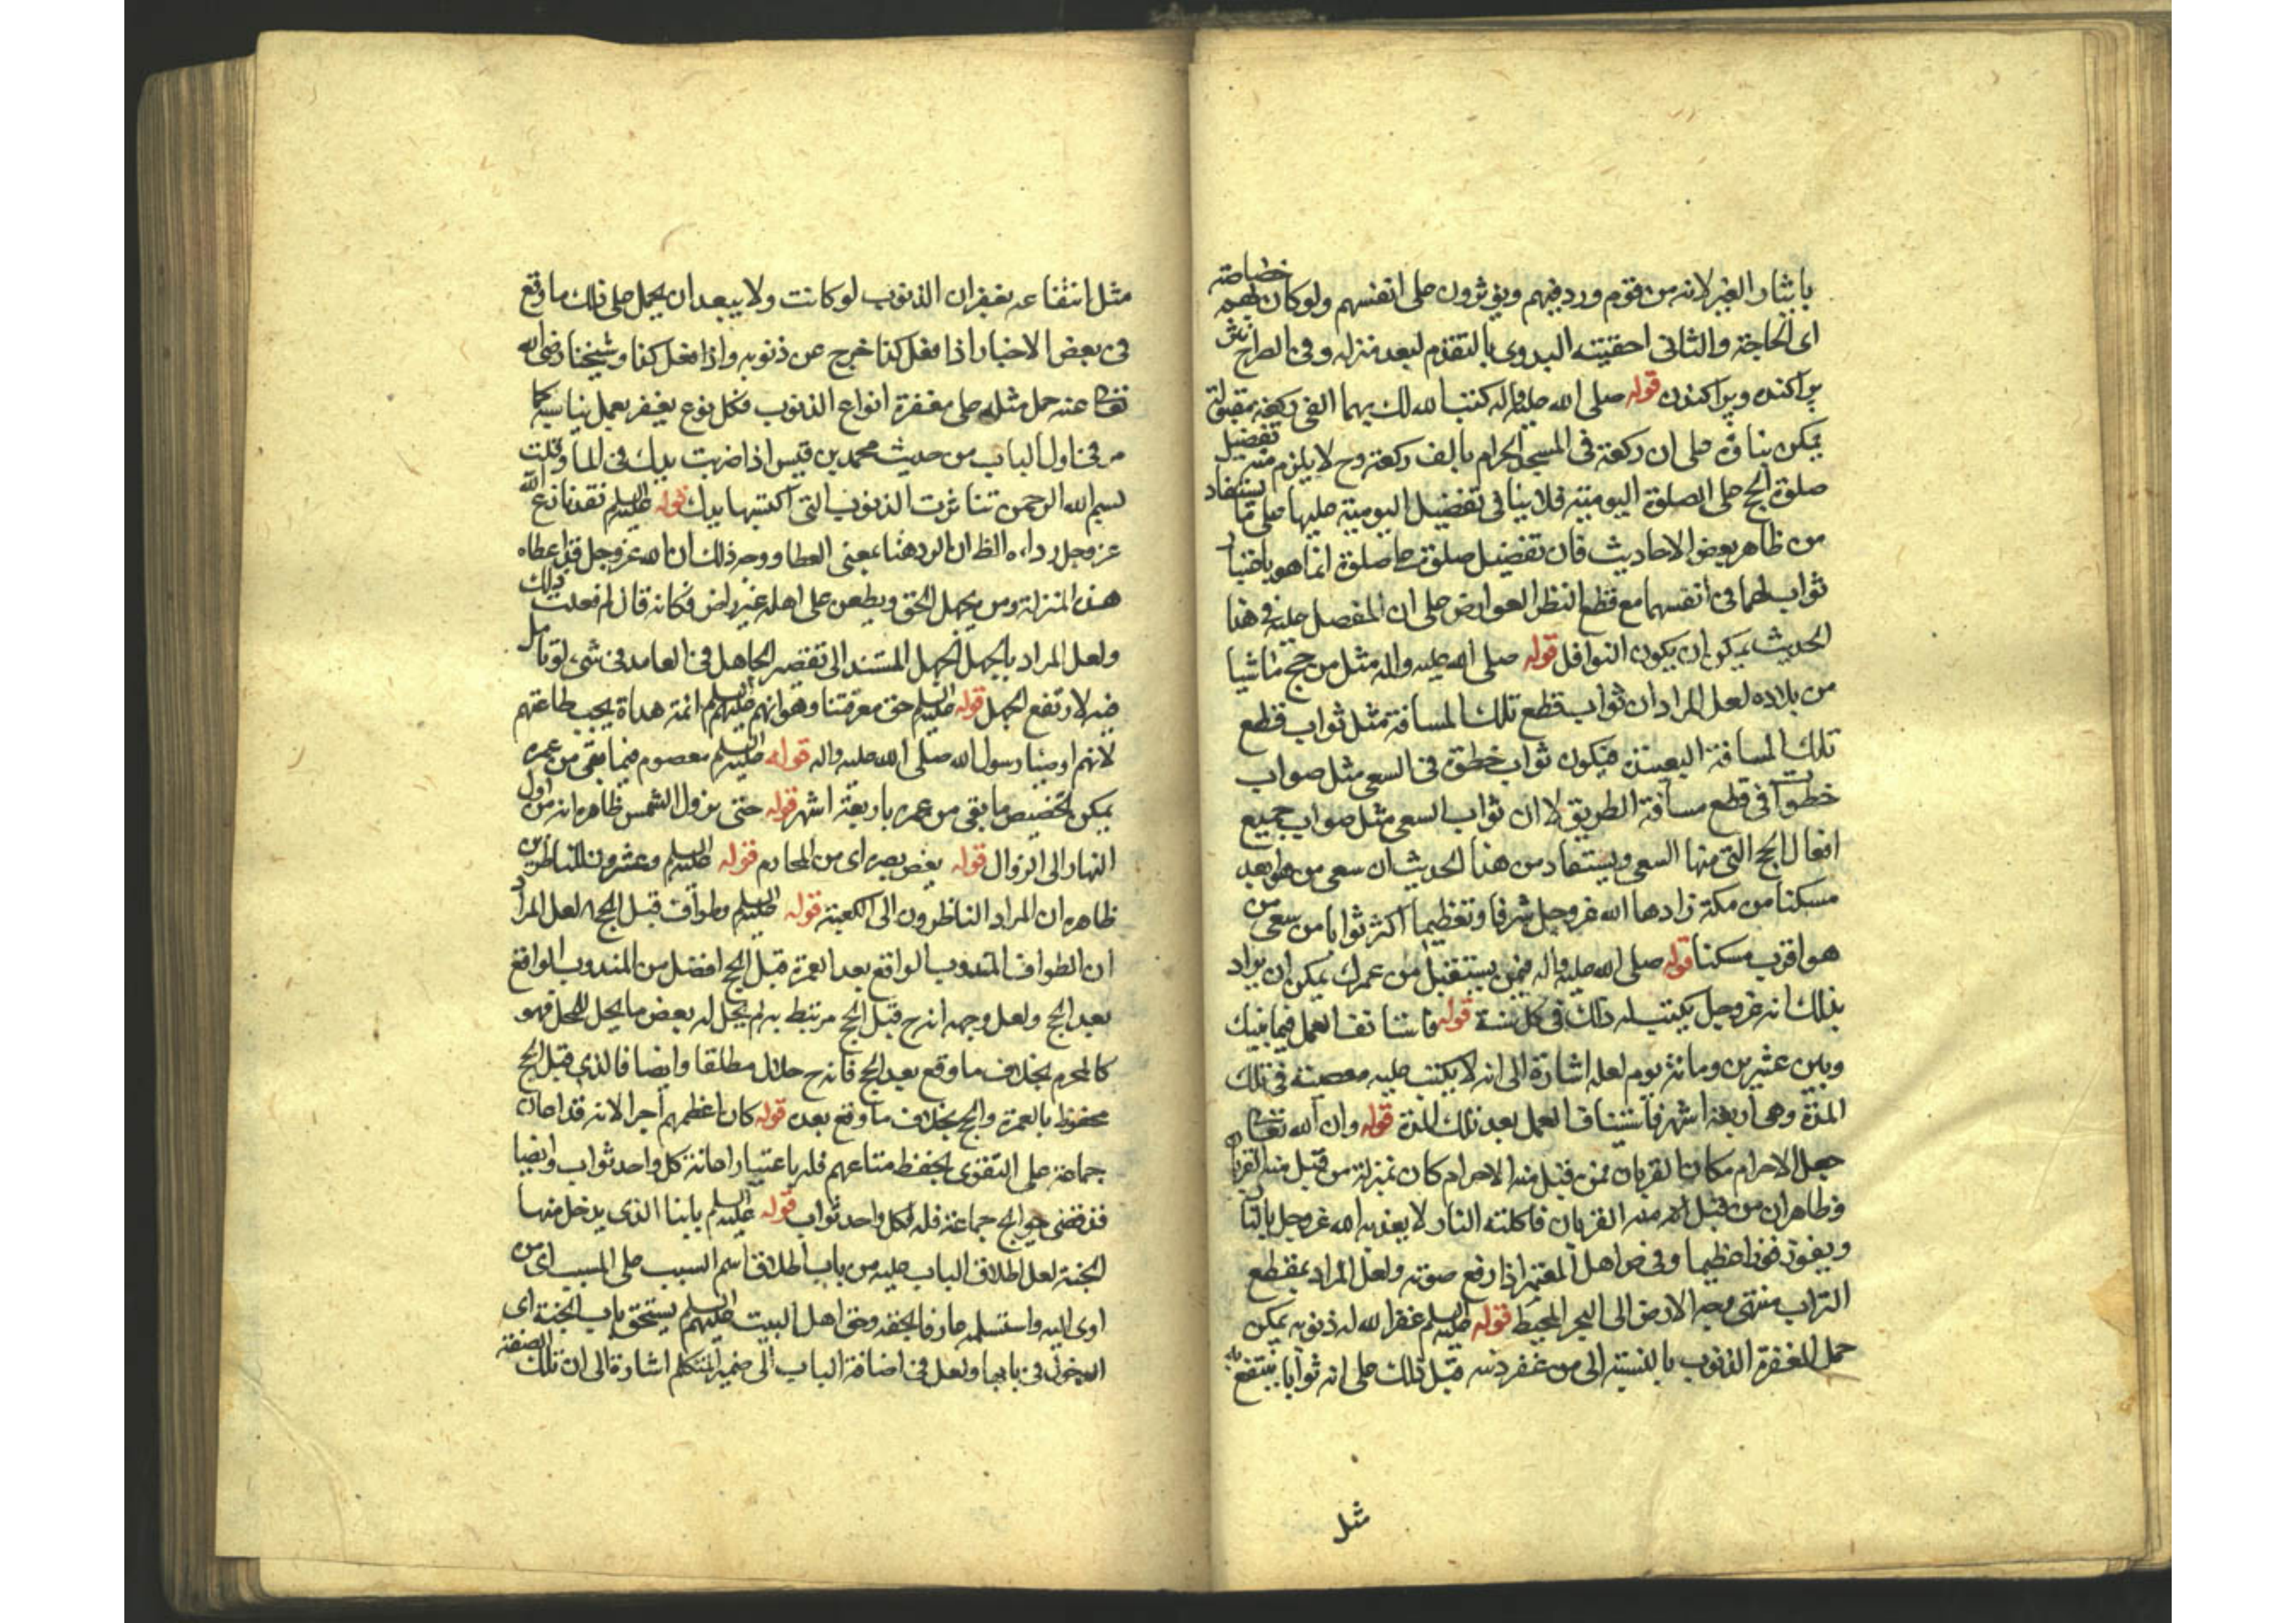 بايثار الغير لانه من قوم ورد فيهم ويؤثرون على انفسهم ولو كان بهم خصاصة
اى الحاجة والثانى احقيته البدوى بالتقدم لبعد منزله وفى الطراح
پراكنده وپراكندن قوله صلى الله عليه واله كتب الله لك بهما الفى ركعة مقبولة
يمكن بناؤه على ان ركعة فى المسجد الحرام بالف ركعة وح لا يلزم منه تفضيل
صلوة الحج على الصلوة اليومية فلا ينافى تفضيل اليومية عليها على ما يستفاد
من ظاهر بعض الاحاديث فان تفضيل صلوة على صلوة انما هو باعتبار
ثوابهما فى انفسهما مع قطع النظر العوارض على ان المفضل عليه فى هذا
الحديث يمكن ان يكون النوافل قوله صلى الله عليه واله مثل من حج ماشيا
من بلاده لعل المراد ان ثواب قطع تلك المسافة مثل ثواب قطع
تلك المسافة البعيدة فيكون ثواب خطوة فى السعى مثل صواب
خطوات فى قطع مسافة الطريق لا ان ثواب السعى مثل صواب جميع
افعال الحج التى منها السعى ويستفاد من هذا الحديث ان سعى من هو ابعد
مسكنا من مكة زادها الله عز وجل شرفا وتعظيما اكثر ثوابا من سعى من
هو اقرب مسكنا قوله صلى الله عليه واله فيمن يستقبل من عمرك يمكن ان يراد
بذلك انه عز وجل يكتب له ذلك فى كل سنة قوله فاستانف العمل فيما بينك
وبين عشرين ومائة يوم لعله اشارة الى انه لا يكتب عليه معصية فى تلك
المدة وهى اربعة اشهر فاستيناف العمل بعد تلك المدة قوله وان الله تعالى
جعل الاحرام مكان القربان فمن قبل منه الاحرام كان بمنزلة من قبل منه القربان
وظاهر ان من قبل منه القربان فاكلته النار لا يعذبه الله عز وجل بالنار
ويفوز فوزا عظيما وفى اهل المعتمر اذا رفع صوته ولعل المراد بمقطع
التراب منتهى وجه الارض الى البحر المحيط قوله عليه السلم غفر الله له ذنوبه يمكن
حمل المغفرة الذنوب بالنسبة الى من غفر ذنبه قبل ذلك على انه ثوابا ينتفع به
مثل
مثل انتفاعه بغفران الذنوب لو كانت ولا يبعد ان يحمل على ذلك ما وقع
فى بعض الاخبار اذا فعل كذا خرج من ذنوبه واذا فعل كذا وشيخنا رضى الله
تعالى عنه حمل مثله على مغفرة انواع الذنوب فكل نوع يغفر بعمل يناسبه كما
مر فى اول الباب من حديث محمد بن قيس اذا ضربت يدك فى الماء وقلت
بسم الله الرحمن تناثرت الذنوب التى اكتسبها يدك قوله عليه السلم نقدنازع الله
عز وجل رداءه الظ ان الرد هنا بمعنى العطا ووجه ذلك ان الله عز وجل قد اعطاه
هذه المنزلة ومن يجهل الحق ويطعن على اهله غير راض فكانه قال لم فعلت ذلك
ولعل المراد بالجهل الجهل المستند الى تقصير الجاهل فى العامد فى شىء لو تامل
فيه لارتفع الجهل قوله عليه السلم حق معرفتنا وهو انهم عليهم السلم ائمة هداة يجب طاعتهم
لانهم اوصيا رسول الله صلى الله عليه واله قوله عليه السلم معصوم فيما بقى من عمره
يمكن تخصيص ما بقى من عمره باربعة اشهر قوله حتى تزول الشمس ظاهره انه من اول
النهار الى الزوال قوله يغض بصره اى من المحارم قوله عليه السلم وعشرون للناظرين
ظاهره ان المراد الناظرون الى الكعبة قوله عليه السلم وطواف قبل الحج لعل المراد
ان الطواف المندوب الواقع بعد العمرة قبل الحج افضل من المندوب الواقع
بعد الحج ولعل وجهه انه ح قبل الحج مرتبط به لم يحل له بعض ما يحل للمحل فهو
كالمحرم بخلاف ما وقع بعد الحج فانه ح حلال مطلقا وايضا فالذى قبل الحج
محفوظ بالعمرة والحج بخلاف ما وقع بعده قوله كان اعظمهم اجرا لانه قد اعان
جماعة على التقوى بحفظ متاعهم فله باعتبار اعانة كل واحد ثواب وايضا
قد قضى حوايج جماعة فله لكل واحد ثواب قوله عليه السلم بابنا الذى يدخل منها
الجنة لعل اطلاق الباب عليه من باب اطلاق اسم السبب على المسبب اى من
اوى اليه واستسلم عارفا بحقه وحق اهل البيت عليهم السلم يستحق باب الجنة اى
الدخول فى بابها ولعل فى اضافة الباب الى ضمير المتكلم اشارة الى ان تلك الصفة